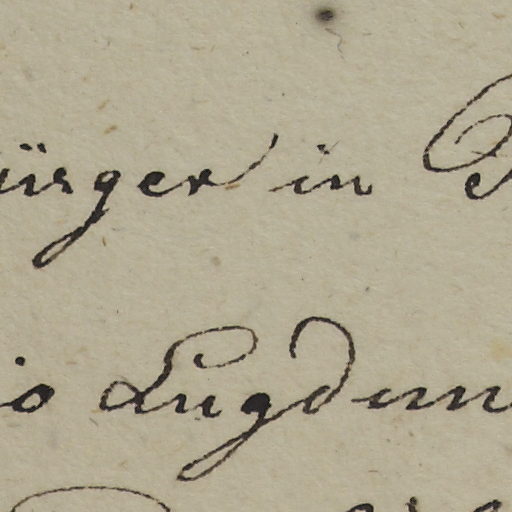 ürger in
io Lugdun